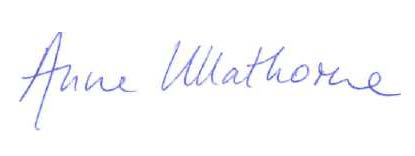 Anne Ullathorne